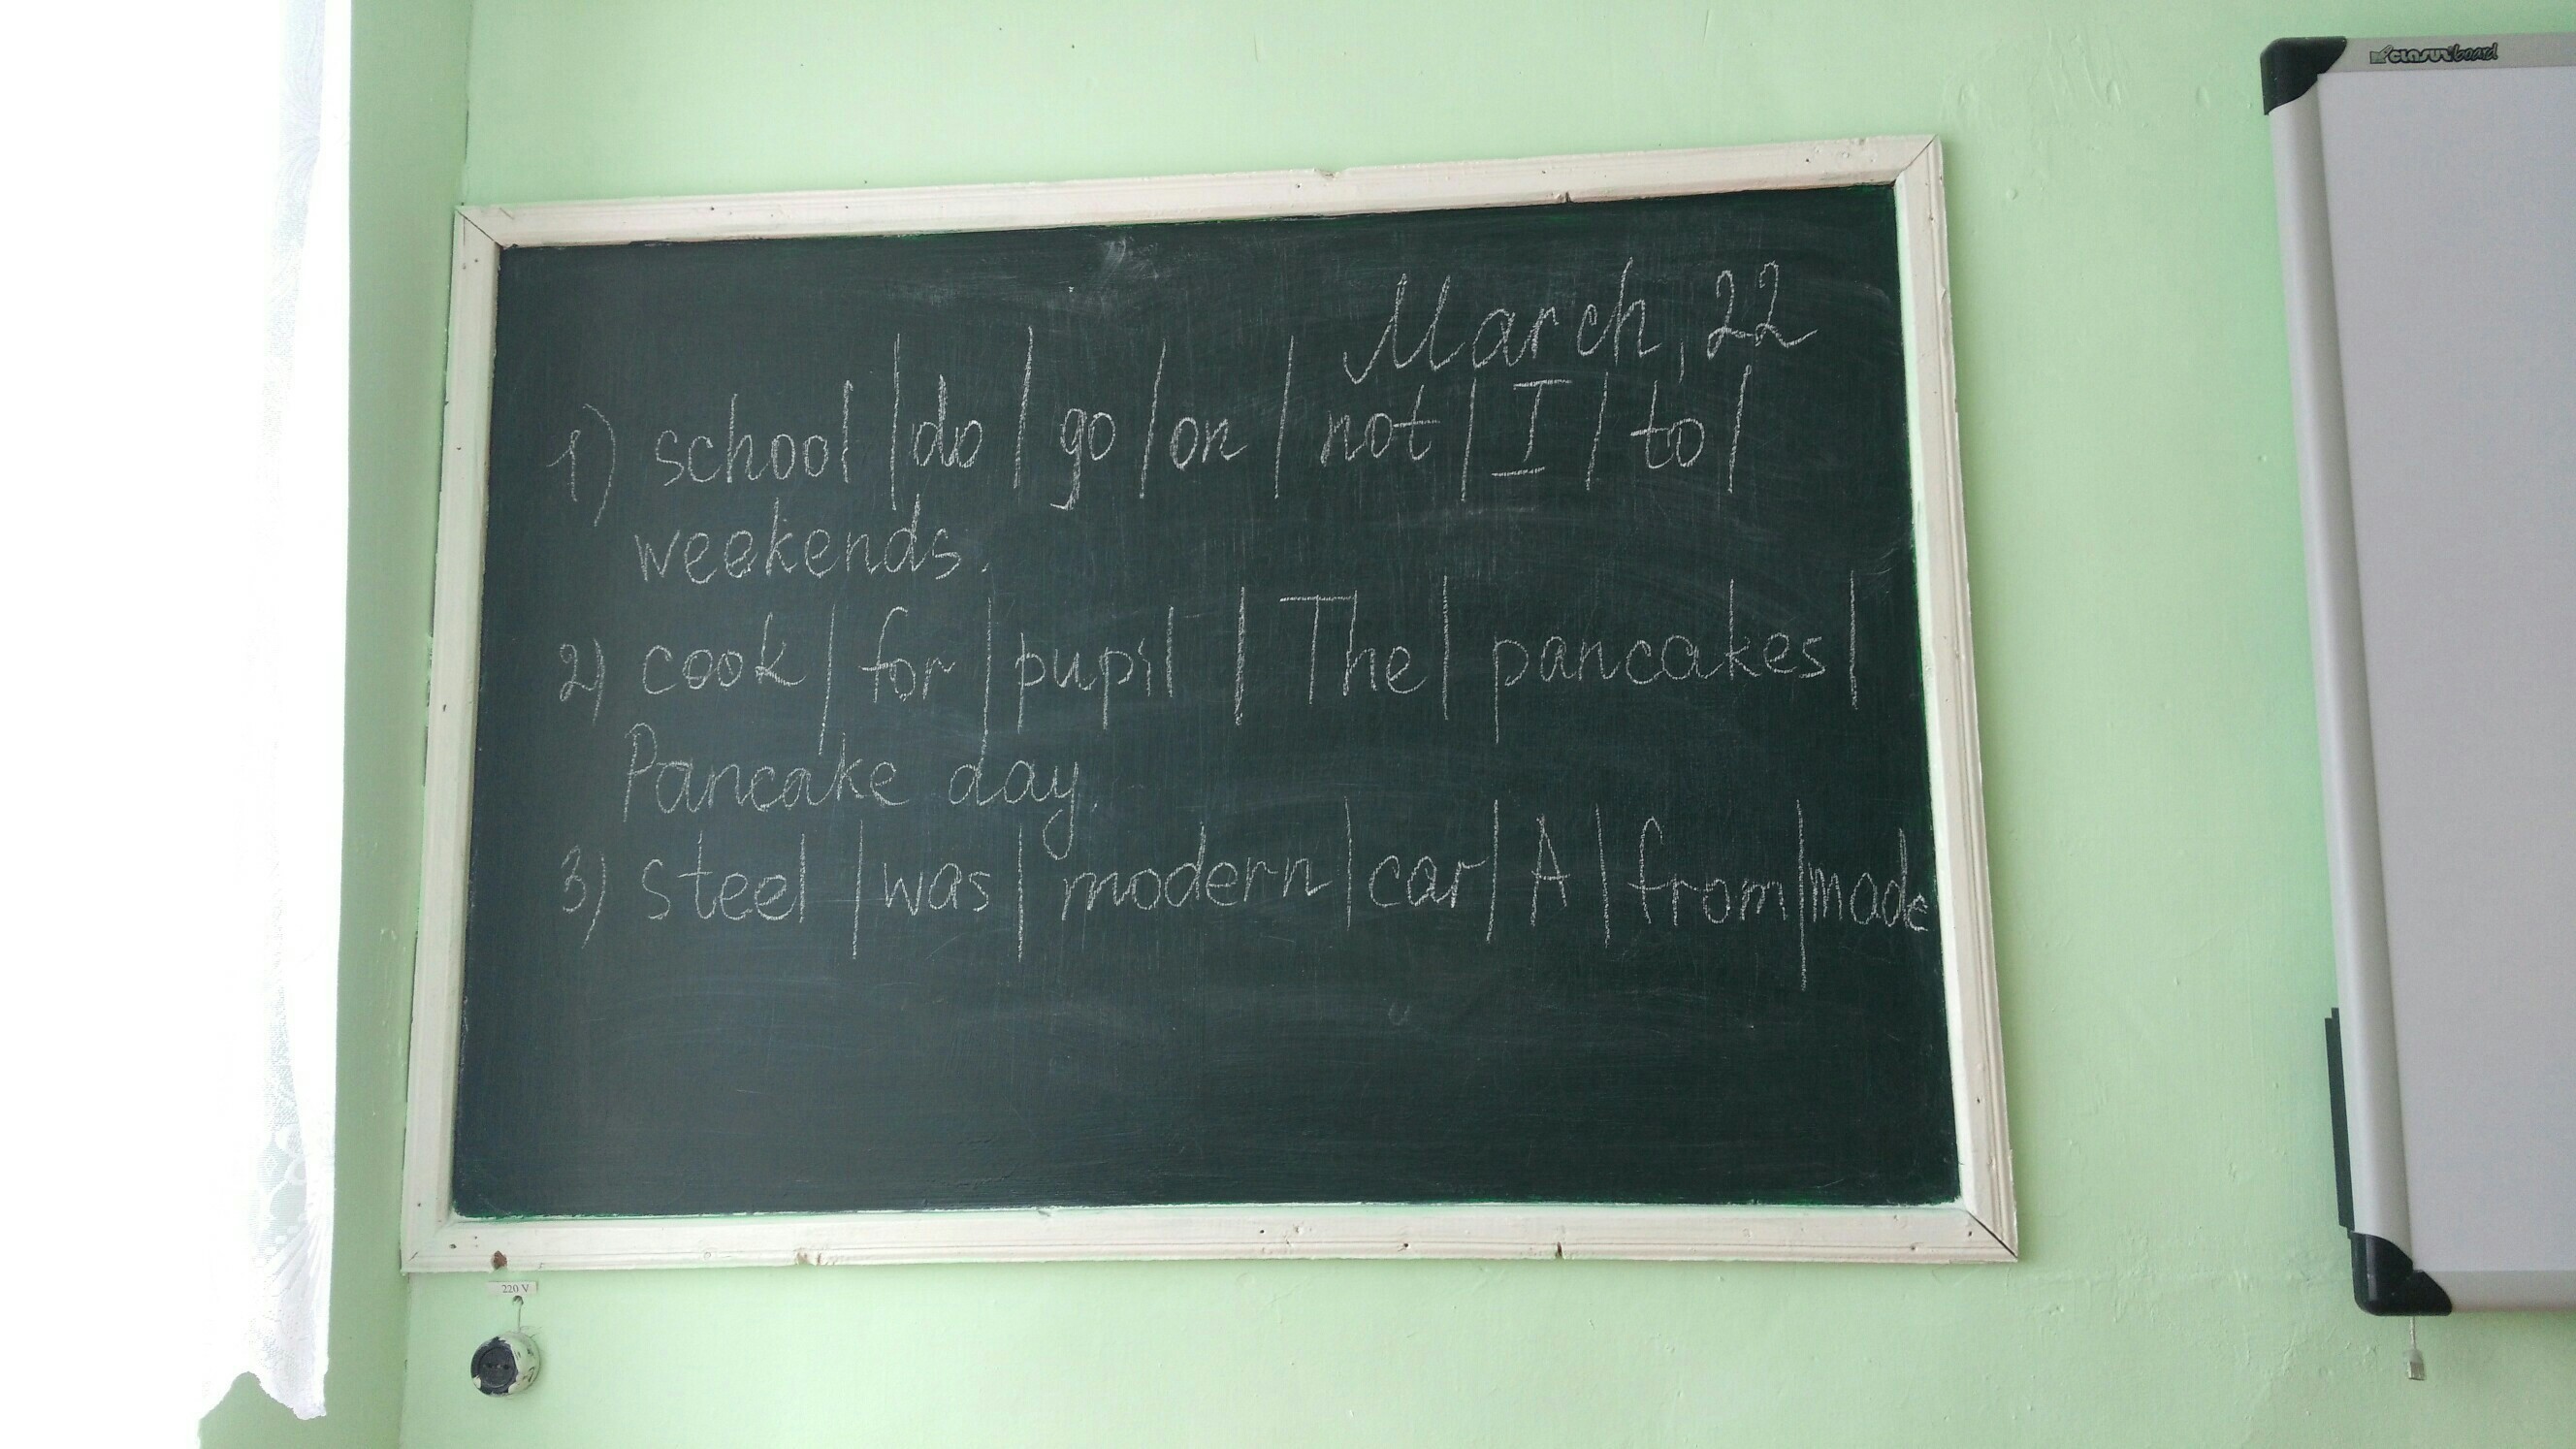 March, 22
1) school | do | go | on | not | I | to |
weekends.
2) cook | for | pupil | The | pancakes |
Pancake day.
3) steel | was | modern | car | A | from | made
220 V